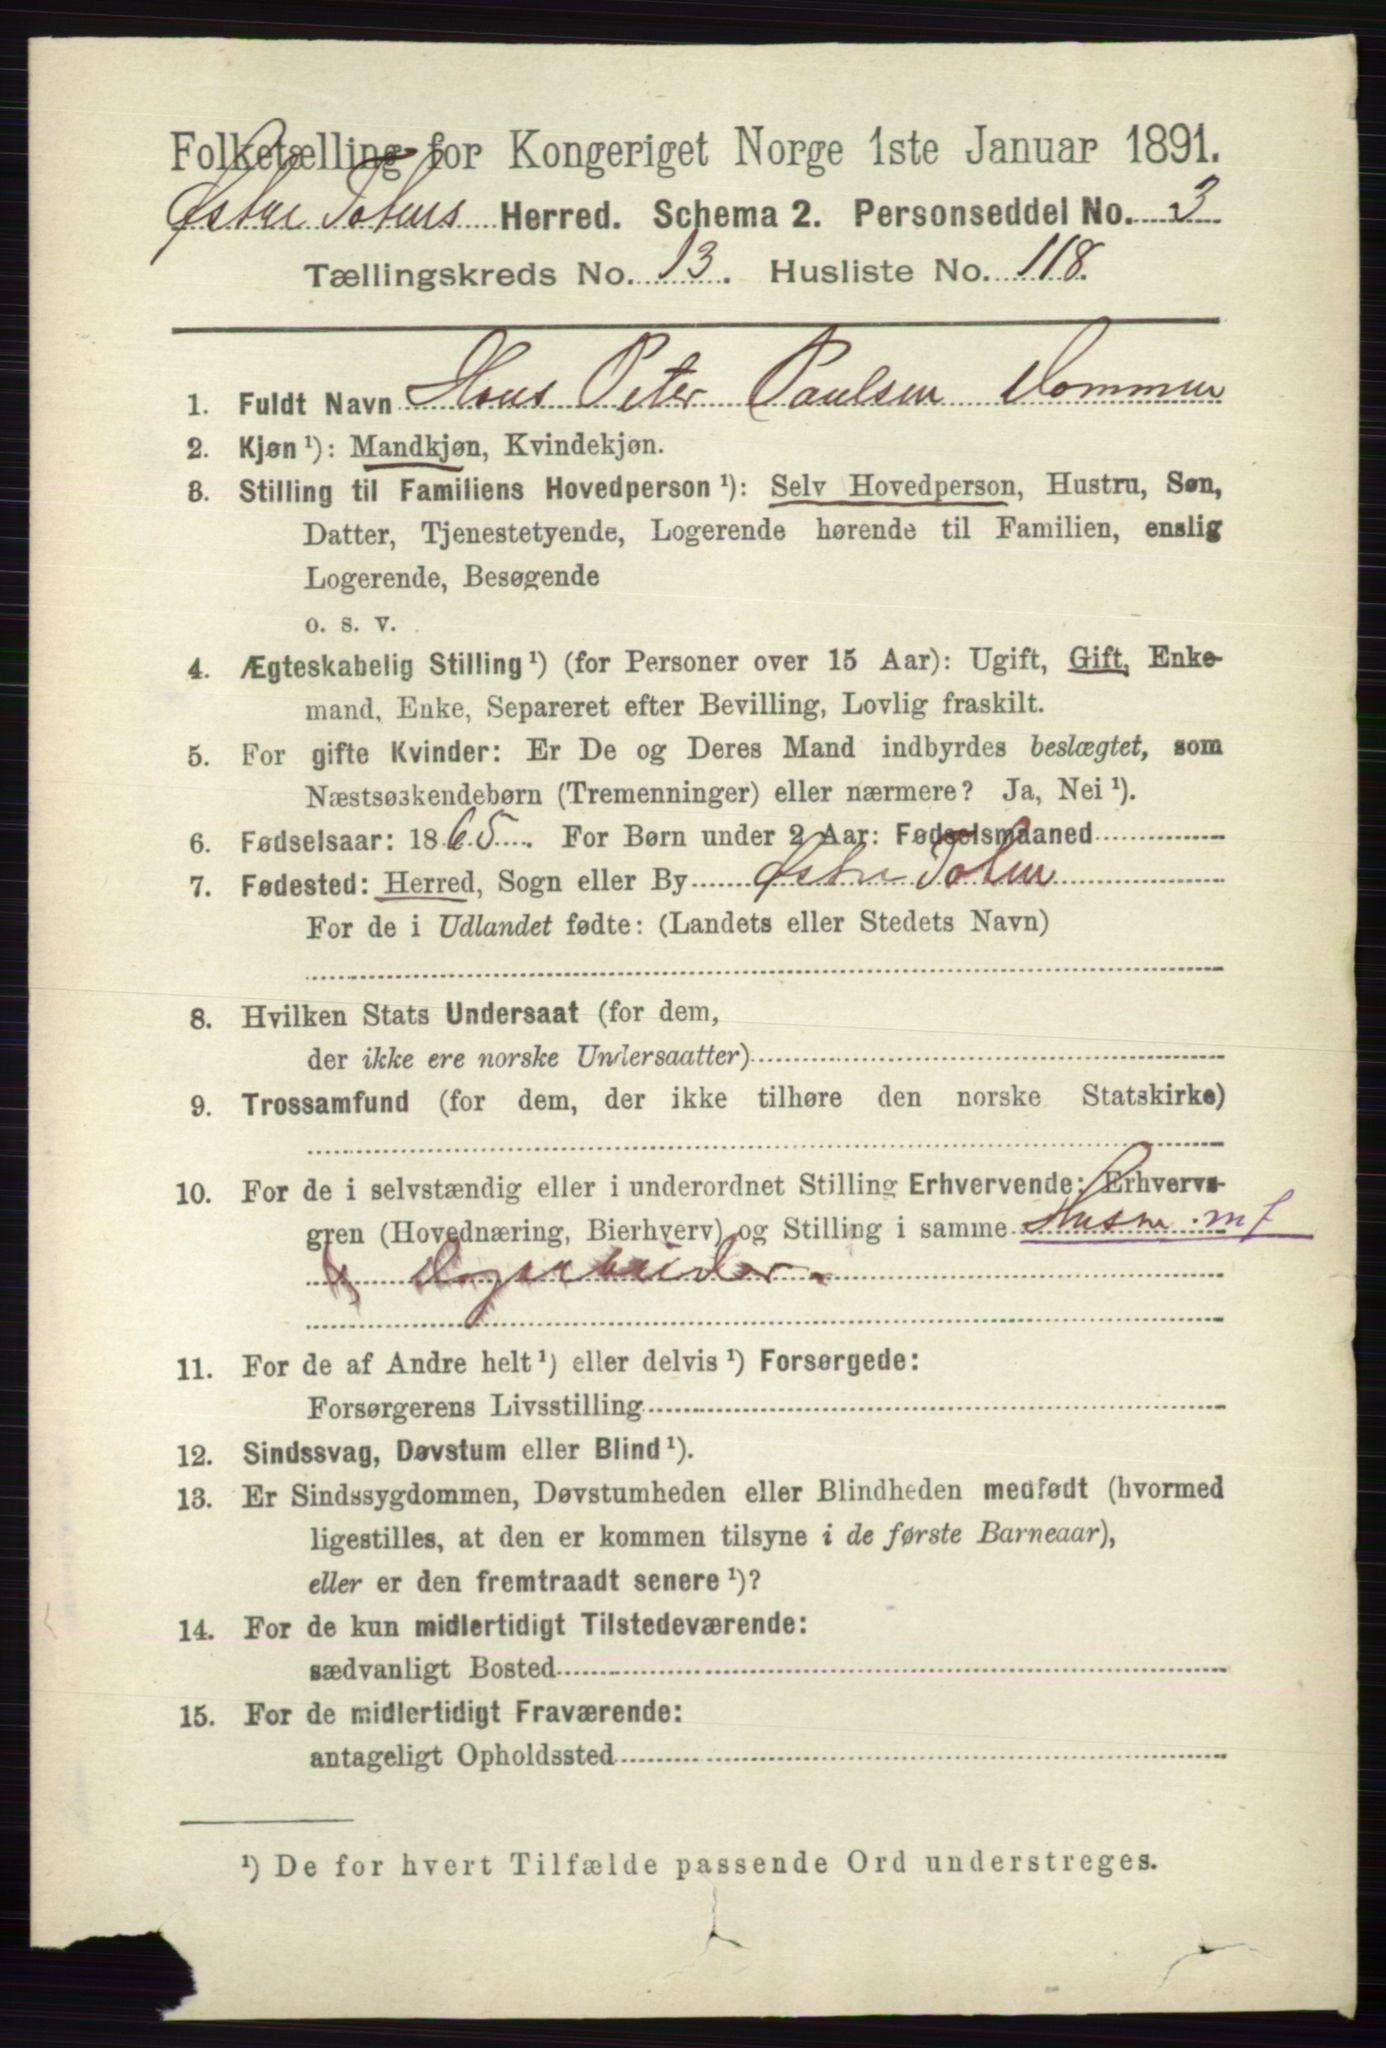 Folketælling for Kongeriget Norge 1ste Januar 1891.
Østre Totens Herred. Schema 2. Personseddel No. 3
Tællingskreds No. 13. Husliste No. 118.
1. Fuldt Navn Hans Peter Paulsen
2. Kjøn ¹): Mandkjøn, Kvindekjøn.
3. Stilling til Familiens Hovedperson ¹): Selv Hovedperson, Hustru, Søn,
Datter, Tjenestetyende, Logerende hørende til Familien, enslig
Logerende, Besøgende
o. s. v.
4. Ægteskabelig Stilling ¹) (for Personer over 15 Aar): Ugift, Gift, Enke-
mand, Enke, Separeret efter Bevilling, Lovlig fraskilt.
5. For gifte Kvinder: Er De og Deres Mand indbyrdes beslægtet, som
Næstsøskendebørn (Tremenninger) eller nærmere? Ja, Nei ¹).
6. Fødselsaar: 1865. For Børn under 2 Aar: Fødselsmaaned
7. Fødested: Herred, Sogn eller By Østre Toten
For de i Udlandet fødte: (Landets eller Stedets Navn)
8. Hvilken Stats Undersaat (for dem,
der ikke ere norske Undersaatter)
9. Trossamfund (for dem, der ikke tilhøre den norske Statskirke)
10. For de i selvstændig eller i underordnet Stilling Erhvervende: Erhvervs-
gren (Hovednæring, Bierhverv) og Stilling i samme Husm. mf
& Dagarbeider.
11. For de af Andre helt ¹) eller delvis ¹) Forsørgede:
Forsørgerens Livsstilling
12. Sindssvag, Døvstum eller Blind ¹).
13. Er Sindssygdommen, Døvstumheden eller Blindheden medfødt (hvormed
ligestilles, at den er kommen tilsyne i de første Barneaar),
eller er den fremtraadt senere ¹)?
14. For de kun midlertidigt Tilstedeværende:
sædvanligt Bosted
15. For de midlertidigt Fraværende:
antageligt Opholdssted
¹) De for hvert Tilfælde passende Ord understreges.